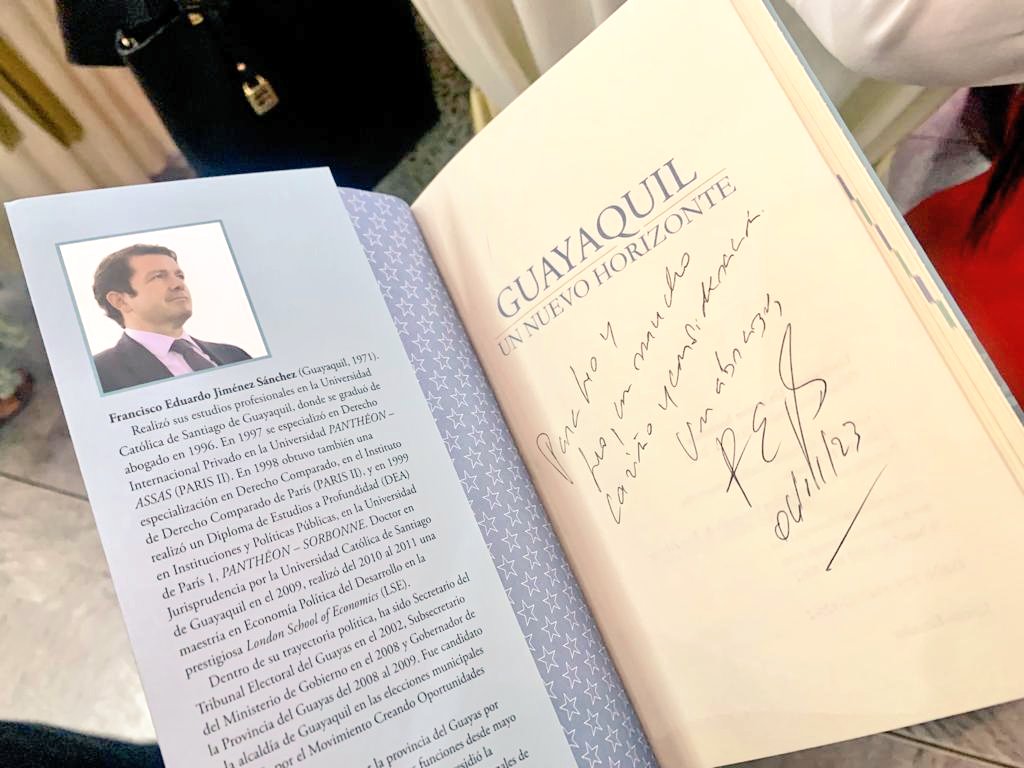 Francisco Eduardo Jiménez Sánchez (Guayaquil, 1971).
Realizó sus estudios profesionales en la Universidad
Católica de Santiago de Guayaquil, donde se graduó de
abogado en 1996. En 1997 se especializó en Derecho
Internacional Privado en la Universidad PANTHÉON –
ASSAS (PARIS II). En 1998 obtuvo también una
especialización en Derecho Comparado, en el Instituto
de Derecho Comparado de París (PARIS II), y en 1999
realizó un Diploma de Estudios a Profundidad (DEA)
en Instituciones y Políticas Públicas, en la Universidad
de París 1, PANTHÉON – SORBONNE. Doctor en
Jurisprudencia por la Universidad Católica de Santiago
de Guayaquil en el 2009, realizó del 2010 al 2011 una
maestría en Economía Política del Desarrollo en la
prestigiosa London School of Economics (LSE).
Dentro de su trayectoria política, ha sido Secretario del
Tribunal Electoral del Guayas en el 2002, Subsecretario
del Ministerio de Gobierno en el 2008 y Gobernador de
la Provincia del Guayas del 2008 al 2009. Fue candidato
a la alcaldía de Guayaquil en las elecciones municipales
por el Movimiento Creando Oportunidades
la provincia del Guayas por
funciones desde mayo
la
de
GUAYAQUIL
UN NUEVO HORIZONTE
Para
y
con mucho
cariño y consideración.
Un abrazo,